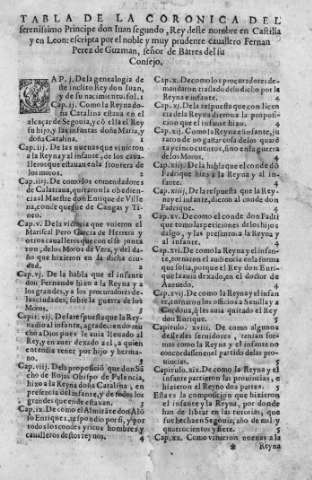 TABLA DE LA CORONICA DEL
serenissimo Principe don Iuan segundo, Rey deste nombre en Castilla
y en Leon: escripta por el noble y muy prudente cauallero Fernan
Perez de Guzman, señor de Batres del su
Consejo.
CAP. j. De la genealogia de
este inclito Rey don Iuan,
y de su nacimiento. fol. 1
Cap. ij. Como la Reyna do-
ña Catalina estaua en el
alcaçar de Segouia, y cõ ella el Rey
su hijo, y las infantas doña Maria, y
doña Catalina.
Cap. iij. De las nueuas que vinieron
a la Reyna y al infante, de los caua-
lleros que estauan en la frontera de
los moros.
Cap. iiij. De como los comendadores
de Calatraua, quitaron la obedien-
cia al Maestre don Enrique de Ville
na, conde que fue de Cangas y Ti-
neo.
Cap. v. De la victoria que vuieron el
Mariscal Pero Garcia de Herrera y
otros caualleros que con el se junta
ron, de los Moros de Vera, y del da-
ño que hizieron en la dicha ciu-
dad.
Cap. vj. De la habla que el infante
don Fernando hizo a la Reyna y a
los grandes, y a los procuradores de
las ciudades, sobre la guerra de los
Moros.
Cap. vij. De la respuesta que la Rey-
na dio al infante, agradeciendo mu
cho a Dios pues le auia lleuado al
Rey, en auer dexado a el, a quien
entendia tener por hijo y herma-
no.
Cap. viij. De la proposicion que don Sã
cho de Rojas Obispo de Palencia,
hizo a la Reyna doña Catalina, en
presencia del infante, y de todos los
grandes que ende estauan.
Cap. ix. De como el Almirãte don Alõ
so Enriquez, respondio por si, y por
todos los condes y ricos hombres, y
caualleros destos reynos. 4
Cap. x. De como los procuradores de-
mandaron traslado de lo dicho por la
Reyna e infante. 4
Cap. xj. De la respuesta que con licen-
cia de la Reyna dieron a la proposi-
cion que el infante hizo. 4
Cap. xij. Como la Reyna e infante, ju
raron de no gastar cosa de los quarẽ
ta y cinco cuentos, sino en la guerra
de los Moros. 4
Cap. xiij. De la habla que el conde dõ
Fadrique hizo a la Reyna y al in-
fante. 4
Cap. xiiij. De la respuesta que la Rey-
na y el infante, dieron al conde don
Fadrique. 4
Cap. xv. De como el conde don Fadri
que tomo las peticiones de los hijos
dalgo, y las presento a la Reyna y
al infante. 4
Cap. xvj. De como la Reyna y el infan-
te, tornaron el audiencia en la forma
que solia, porque el Rey don Enri-
que la auia dexado, en el doctor de
Azeuedo. 4
Cap. xvij. De como la Reyna y el infan-
te, tornaron los officios a Seuilla y a
Cordoua, q̃ les auia quitado el Rey
don Enrique. 5
Capitulo. xviij. De como algunos
desleales seruidores, tenian sus
mas como la Reyna y el infante no
concordassen en el partido de las pro-
uincias. 5
Capitulo. xix. De como la Reyna y el
infante partieron las prouincias, e
hizieron el Reyno dos partes. 5
Esta es la composicion que hizieron
el infante y la Reyna, por donde
han de librar en las rentas, que
fue hecha en Segouia, año de mil y
quatrocientos y siete. 5
Cap. xx. Como vinieron nueuas a la
* Reyna